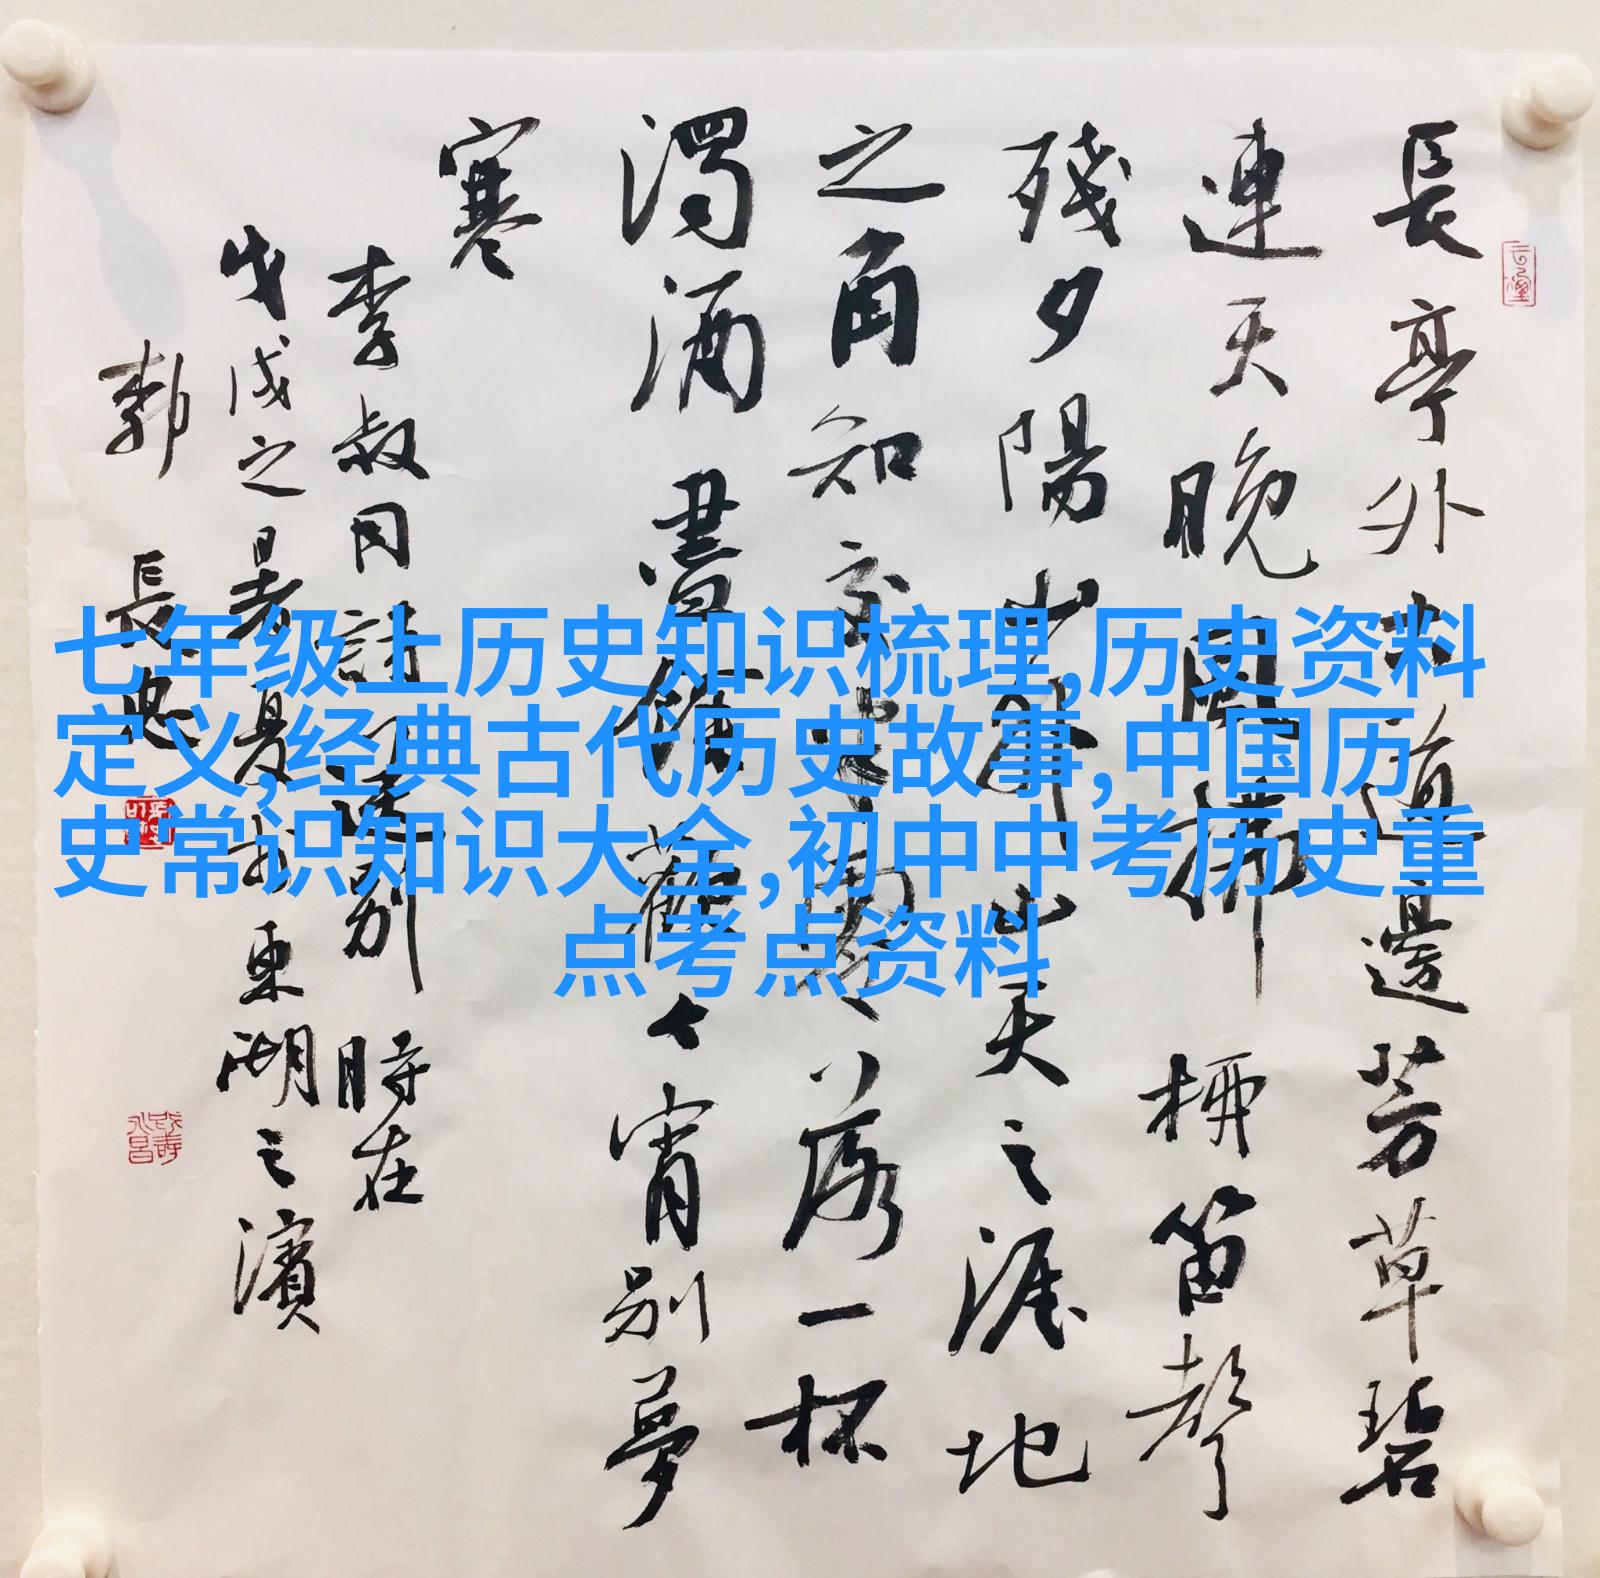 長亭外古道邊芳草碧
連天晚風拂柳笛聲
殘夕陽山外山天之涯地
之角知交半零落一杯
濁酒盡餘歡今宵別夢
寒
李叔同詩送別 時在
戊戌之暑夏於東湖之濱
郭長忠
七年级上历史知识梳理,历史资料
定义,经典古代历史故事,中国历
史常识知识大全,初中中考历史重
点考点资料